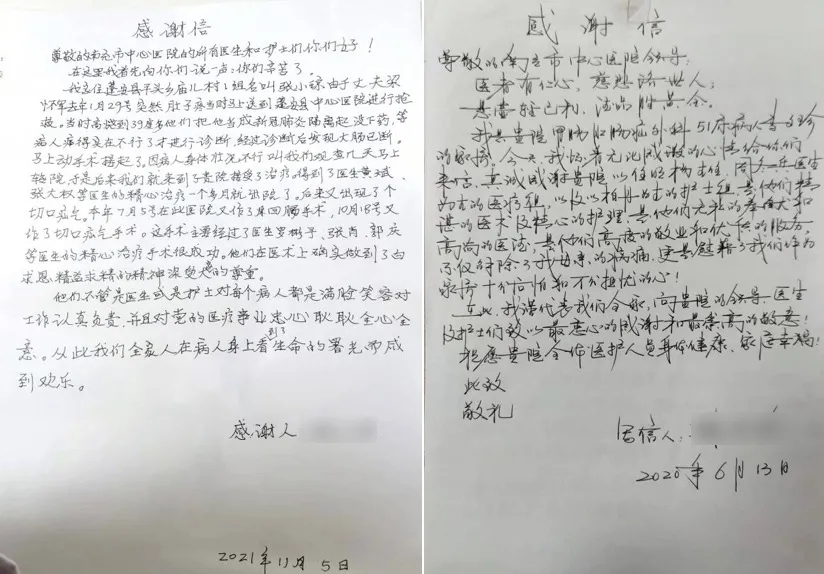 感谢信
尊敬的南充市中心医院的所有医生和护士们你们好！
在这里我首先向你们说一声：你们辛苦了。
我家住蓬安县平头乡庙儿村1组名叫张小琼由于丈夫梁
怀军去年1月29号突然肚子痛当时马上送到蓬安县中心医院进行抢
救。当时高烧到39度多他们把他当成新冠肺炎隔离起没下药，等
病人痛得实在不行了才进行诊断，经过诊断后发现大肠已断。
马上动手术接起了，因病人身体状况不行叫我们观查几天马上
转院，于是后来我们就来到了贵院接受了治疗，得到了医生黄斌、
张大权等医生的精心治疗一个多月就出院了。后来又出现了个
切口疝气。本年7月5号在此医院又作了鼻胃肠手术，10月18号又
作了切口疝气手术。这手术主要经过了医生罗树子，张肖，郭庆
等医生的精心治疗手术很成功。他们在医术上确实做到了白
求恩精益求精的精神深受患者的尊重。
他们不管是医生或是护士对每个病人都是满脸笑容对
工作认真负责，并且对党的医疗事业忠心耿耿全心全
意。从此我们全家人在病人身上看到了生命的署光而感
到欢乐。
感谢人
2021年11月5日
感谢信
尊敬的南充市中心医院领导：
医者有仁心，慈悲济世人；
悬壶轻己利，德品胜黄金。
我是贵院胃肠肛肠疝外科51床病人
的家属，今天，我怀着无比感激的心情给你们
来信，真诚感谢贵院以任明扬主任、周
为主的医疗组，以及以柏丹为主的护士组，是他们精
湛的医术及精心的护理，是他们无私的奉献和
高尚的医德，是他们高度的敬业和优质的服务，
不仅解除了我母亲的病痛，更是慰藉了我们作为
家属十分同情和不分担忧的心！
在此，我谨代表我们全家，向贵院的领导、医生
及护士们致以最衷心的感谢和最崇高的敬意！
祝愿贵院全体医护人员身体健康，家庭幸福！
此致
敬礼
写信人：
2020年6月13日